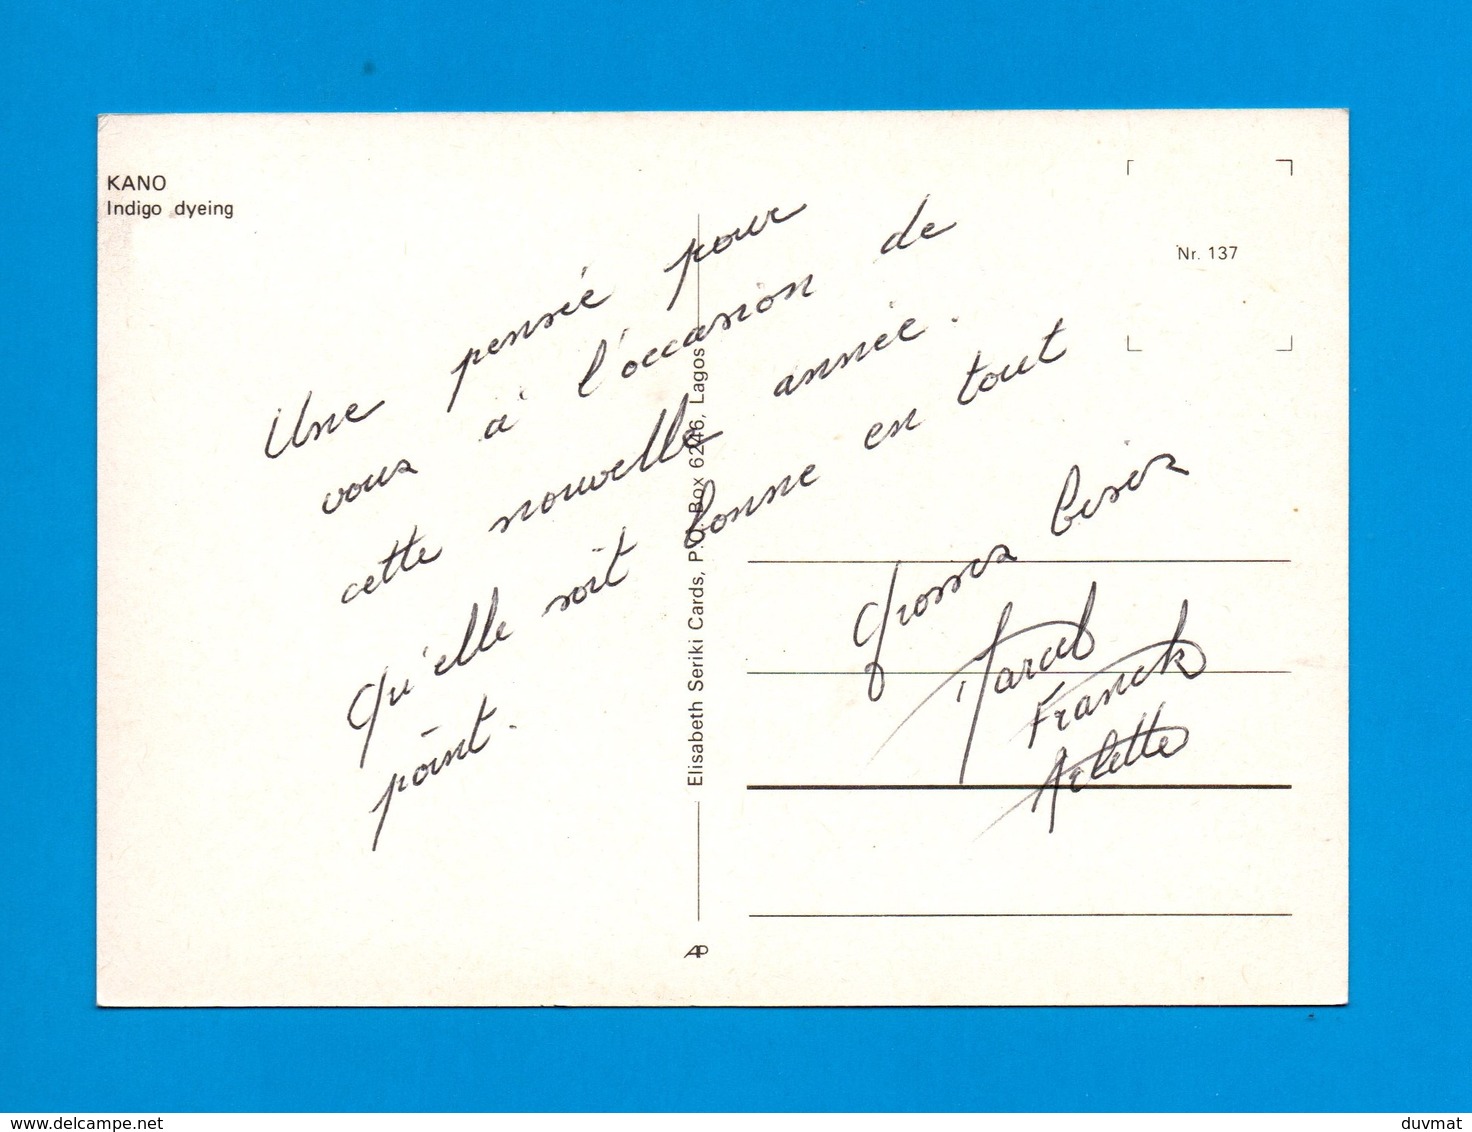 KANO
Indigo dyeing
Nr. 137
Une pensée pour
vous à l'occasion de
cette nouvelle année.
Qu'elle soit bonne en tout
point.
Grosses bises
Marcel
Franck
Arlette
Elisabeth Seriki Cards, P.O. Box 6246, Lagos
delcampe.net
duvmat